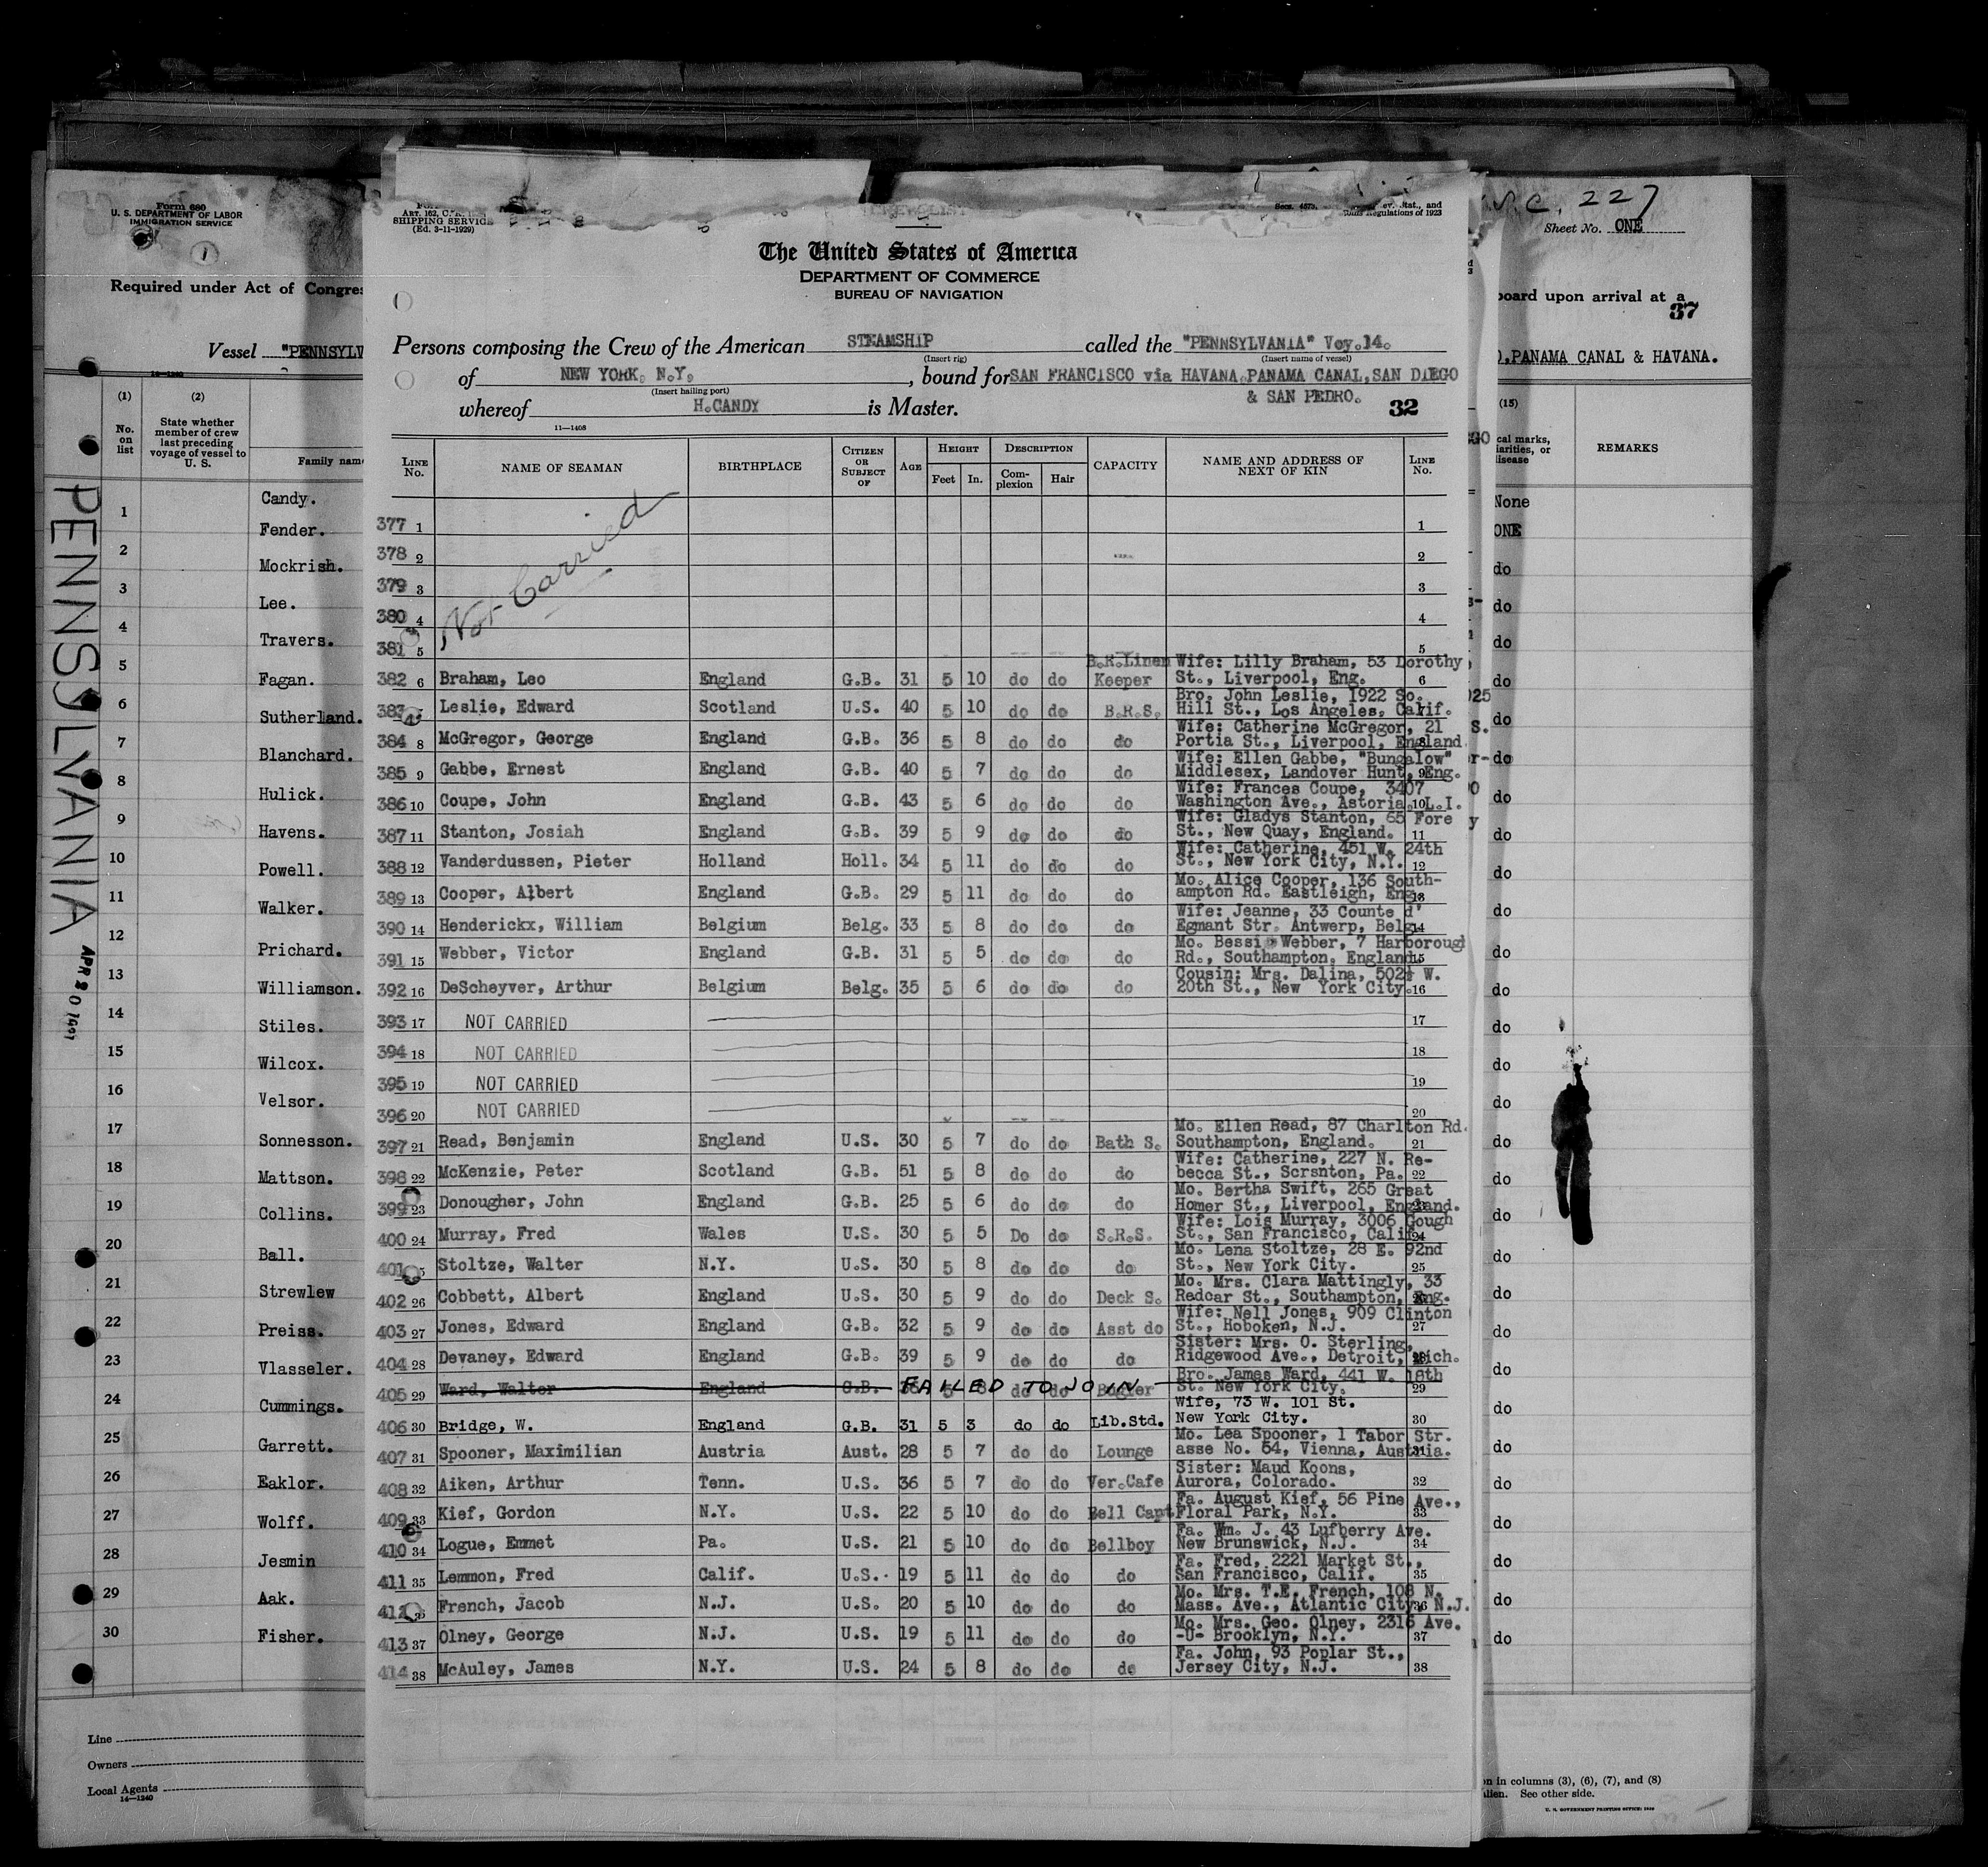 Form 680
U. S. DEPARTMENT OF LABOR
IMMIGRATION SERVICE
1
Required under Act of Congres
Vessel "PENNSYLV
(1) (2)
No. on list
State whether member of crew last preceding voyage of vessel to U. S.
Family name
Candy.
1 Fender.
2 Mockrish.
3 Lee.
4 Travers.
5 Fagan.
6 Sutherland.
7 Blanchard.
8 Hulick.
9 Havens.
10 Powell.
11 Walker.
12 Prichard.
13 Williamson.
14 Stiles.
15 Wilcox.
16 Velsor.
17 Sonnesson.
18 Mattson.
19 Collins.
20 Ball.
21 Strewlew
22 Preiss.
23 Vlasseler.
24 Cummings.
25 Garrett.
26 Eaklor.
27 Wolff.
28 Jesmin
29 Aak.
30 Fisher.
Line
Owners
Local Agents
14—1240
PENNSYLVANIA
APR 20
ART. 162,
SHIPPING SERVICE
(Ed. 3-11-1929)
Secs. 4573, Stat., and
Regulations of 1923
The United States of America
DEPARTMENT OF COMMERCE
BUREAU OF NAVIGATION
Persons composing the Crew of the American STEAMSHIP called the "PENNSYLVANIA" Voy.14.
(Insert rig) (Insert name of vessel)
of NEW YORK, N.Y., bound for SAN FRANCISCO via HAVANA, PANAMA CANAL, SAN DIEGO
(Insert hailing port) & SAN PEDRO.
whereof H.CANDY is Master. 32
11—1408
LINE No. NAME OF SEAMAN BIRTHPLACE CITIZEN OR SUBJECT OF AGE HEIGHT Feet In. DESCRIPTION Complexion Hair CAPACITY NAME AND ADDRESS OF NEXT OF KIN LINE No.
377 1 1
378 2 2
379 3 3
380 4 4
381 5 5
Not Carried
382 6 Braham, Leo England G.B. 31 5 10 do do B.R.Linen Keeper Wife: Lilly Braham, 53 Dorothy St., Liverpool, Eng. 6
383 Leslie, Edward Scotland U.S. 40 5 10 do do B.R.S. Bro. John Leslie, 1922 So. Hill St., Los Angeles, Calif.
384 8 McGregor, George England G.B. 36 5 8 do do do Wife: Catherine McGregor, 21 Portia St., Liverpool, England
385 9 Gabbe, Ernest England G.B. 40 5 7 do do do Wife: Ellen Gabbe, "Bungalow" Middlesex, Landover Hunt, Eng. 9
386 10 Coupe, John England G.B. 43 5 6 do do do Wife: Frances Coupe, 3407 Washington Ave., Astoria, L.I. 10
387 11 Stanton, Josiah England G.B. 39 5 9 do do do Wife: Gladys Stanton, 65 Fore St., New Quay, England. 11
388 12 Vanderdussen, Pieter Holland Holl. 34 5 11 do do do Wife: Catherine, 451 W. 24th St., New York City, N.Y. 12
389 13 Cooper, Albert England G.B. 29 5 11 do do do Mo. Alice Cooper, 136 Southampton Rd. Eastleigh, Eng. 13
390 14 Henderickx, William Belgium Belg. 33 5 8 do do do Wife: Jeanne, 33 Counte d' Egmant Str. Antwerp, Belg. 14
391 15 Webber, Victor England G.B. 31 5 5 do do do Mo. Bessie Webber, 7 Harborough Rd., Southampton, England. 15
392 16 DeScheyver, Arthur Belgium Belg. 35 5 6 do do do Cousin: Mrs. Dalina, 502½ W. 20th St., New York City. 16
393 17 NOT CARRIED 17
394 18 NOT CARRIED 18
395 19 NOT CARRIED 19
396 20 NOT CARRIED 20
397 21 Read, Benjamin England U.S. 30 5 7 do do Bath S. Mo. Ellen Read, 87 Charlton Rd. Southampton, England. 21
398 22 McKenzie, Peter Scotland G.B. 51 5 8 do do do Wife: Catherine, 227 N. Rebecca St., Scrsnton, Pa. 22
399 23 Donougher, John England G.B. 25 5 6 do do do Mo. Bertha Swift, 265 Great Homer St., Liverpool, England.
400 24 Murray, Fred Wales U.S. 30 5 5 Do do S.R.S. Wife: Lois Murray, 3006 Gough St., San Francisco, Calif. 24
401 Stoltze, Walter N.Y. U.S. 30 5 8 do do do Mo. Lena Stoltze, 28 E. 92nd St., New York City. 25
402 26 Cobbett, Albert England U.S. 30 5 9 do do Deck S. Mo. Mrs. Clara Mattingly, 33 Redcar St., Southampton, Eng.
403 27 Jones, Edward England G.B. 32 5 9 do do Asst do Wife: Nell Jones, 909 Clinton St., Hoboken, N.J. 27
404 28 Devaney, Edward England G.B. 39 5 9 do do do Sister: Mrs. O. Sterling, Ridgewood Ave., Detroit, Mich. 28
405 29 Ward, Walter England G.B. FAILED TO JOIN do do Bugler Bro. James Ward, 441 W. 18th St. New York City. 29
406 30 Bridge, W. England G.B. 31 5 3 do do Lib.Std. Wife, 73 W. 101 St. New York City. 30
407 31 Spooner, Maximilian Austria Aust. 28 5 7 do do Lounge Mo. Lea Spooner, 1 Tabor Str. asse No. 54, Vienna, Austria. 31
408 32 Aiken, Arthur Tenn. U.S. 36 5 7 do do Ver.Cafe Sister: Maud Koons, Aurora, Colorado. 32
409 33 Kief, Gordon N.Y. U.S. 22 5 10 do do Bell Capt Fa. August Kief, 56 Pine Ave., Floral Park, N.Y. 33
410 34 Logue, Emmet Pa. U.S. 21 5 10 do do Bellboy Fa. Wm. J. 43 Lufberry Ave. New Brunswick, N.J. 34
411 35 Lemmon, Fred Calif. U.S. 19 5 11 do do do Fa. Fred, 2221 Market St., San Francisco, Calif. 35
412 French, Jacob N.J. U.S. 20 5 10 do do do Mo. Mrs. T.E. French, 108 N. Mass. Ave., Atlantic City, N.J. 36
413 37 Olney, George N.J. U.S. 19 5 11 do do do Mo. Mrs. Geo. Olney, 2316 Ave. -U- Brooklyn, N.Y. 37
414 38 McAuley, James N.Y. U.S. 24 5 8 do do do Fa. John, 93 Poplar St., Jersey City, N.J. 38
227
Sheet No. ONE
board upon arrival at a
37
PANAMA CANAL & HAVANA.
(15)
cal marks,
iarities, or
disease
REMARKS
None
ONE
do
do
do
do
do
do
do
do
do
do
do
do
do
do
do
do
do
do
do
do
do
do
do
do
do
do
do
do
do
in columns (3), (6), (7), and (8)
See other side.
U. S. GOVERNMENT PRINTING OFFICE: